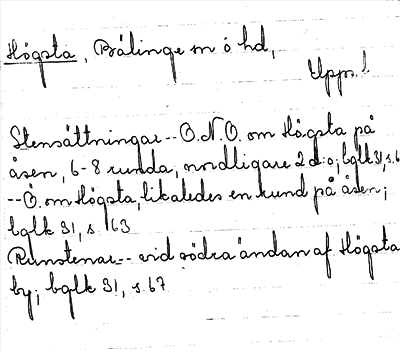 Högsta, Bälinge sn ó hd,
Uppl.
Stensättningar -- O.N.O. om Högsta på
åsen, 6-8 runda, nordligare 2 d:o; bglk 31, s.6
-- Ö. om Högsta, likaledes en rund på åsen;
bglk 31, s. 63
Runstenar -- vid södra ändan af Högsta
by; bglk 31, s. 67